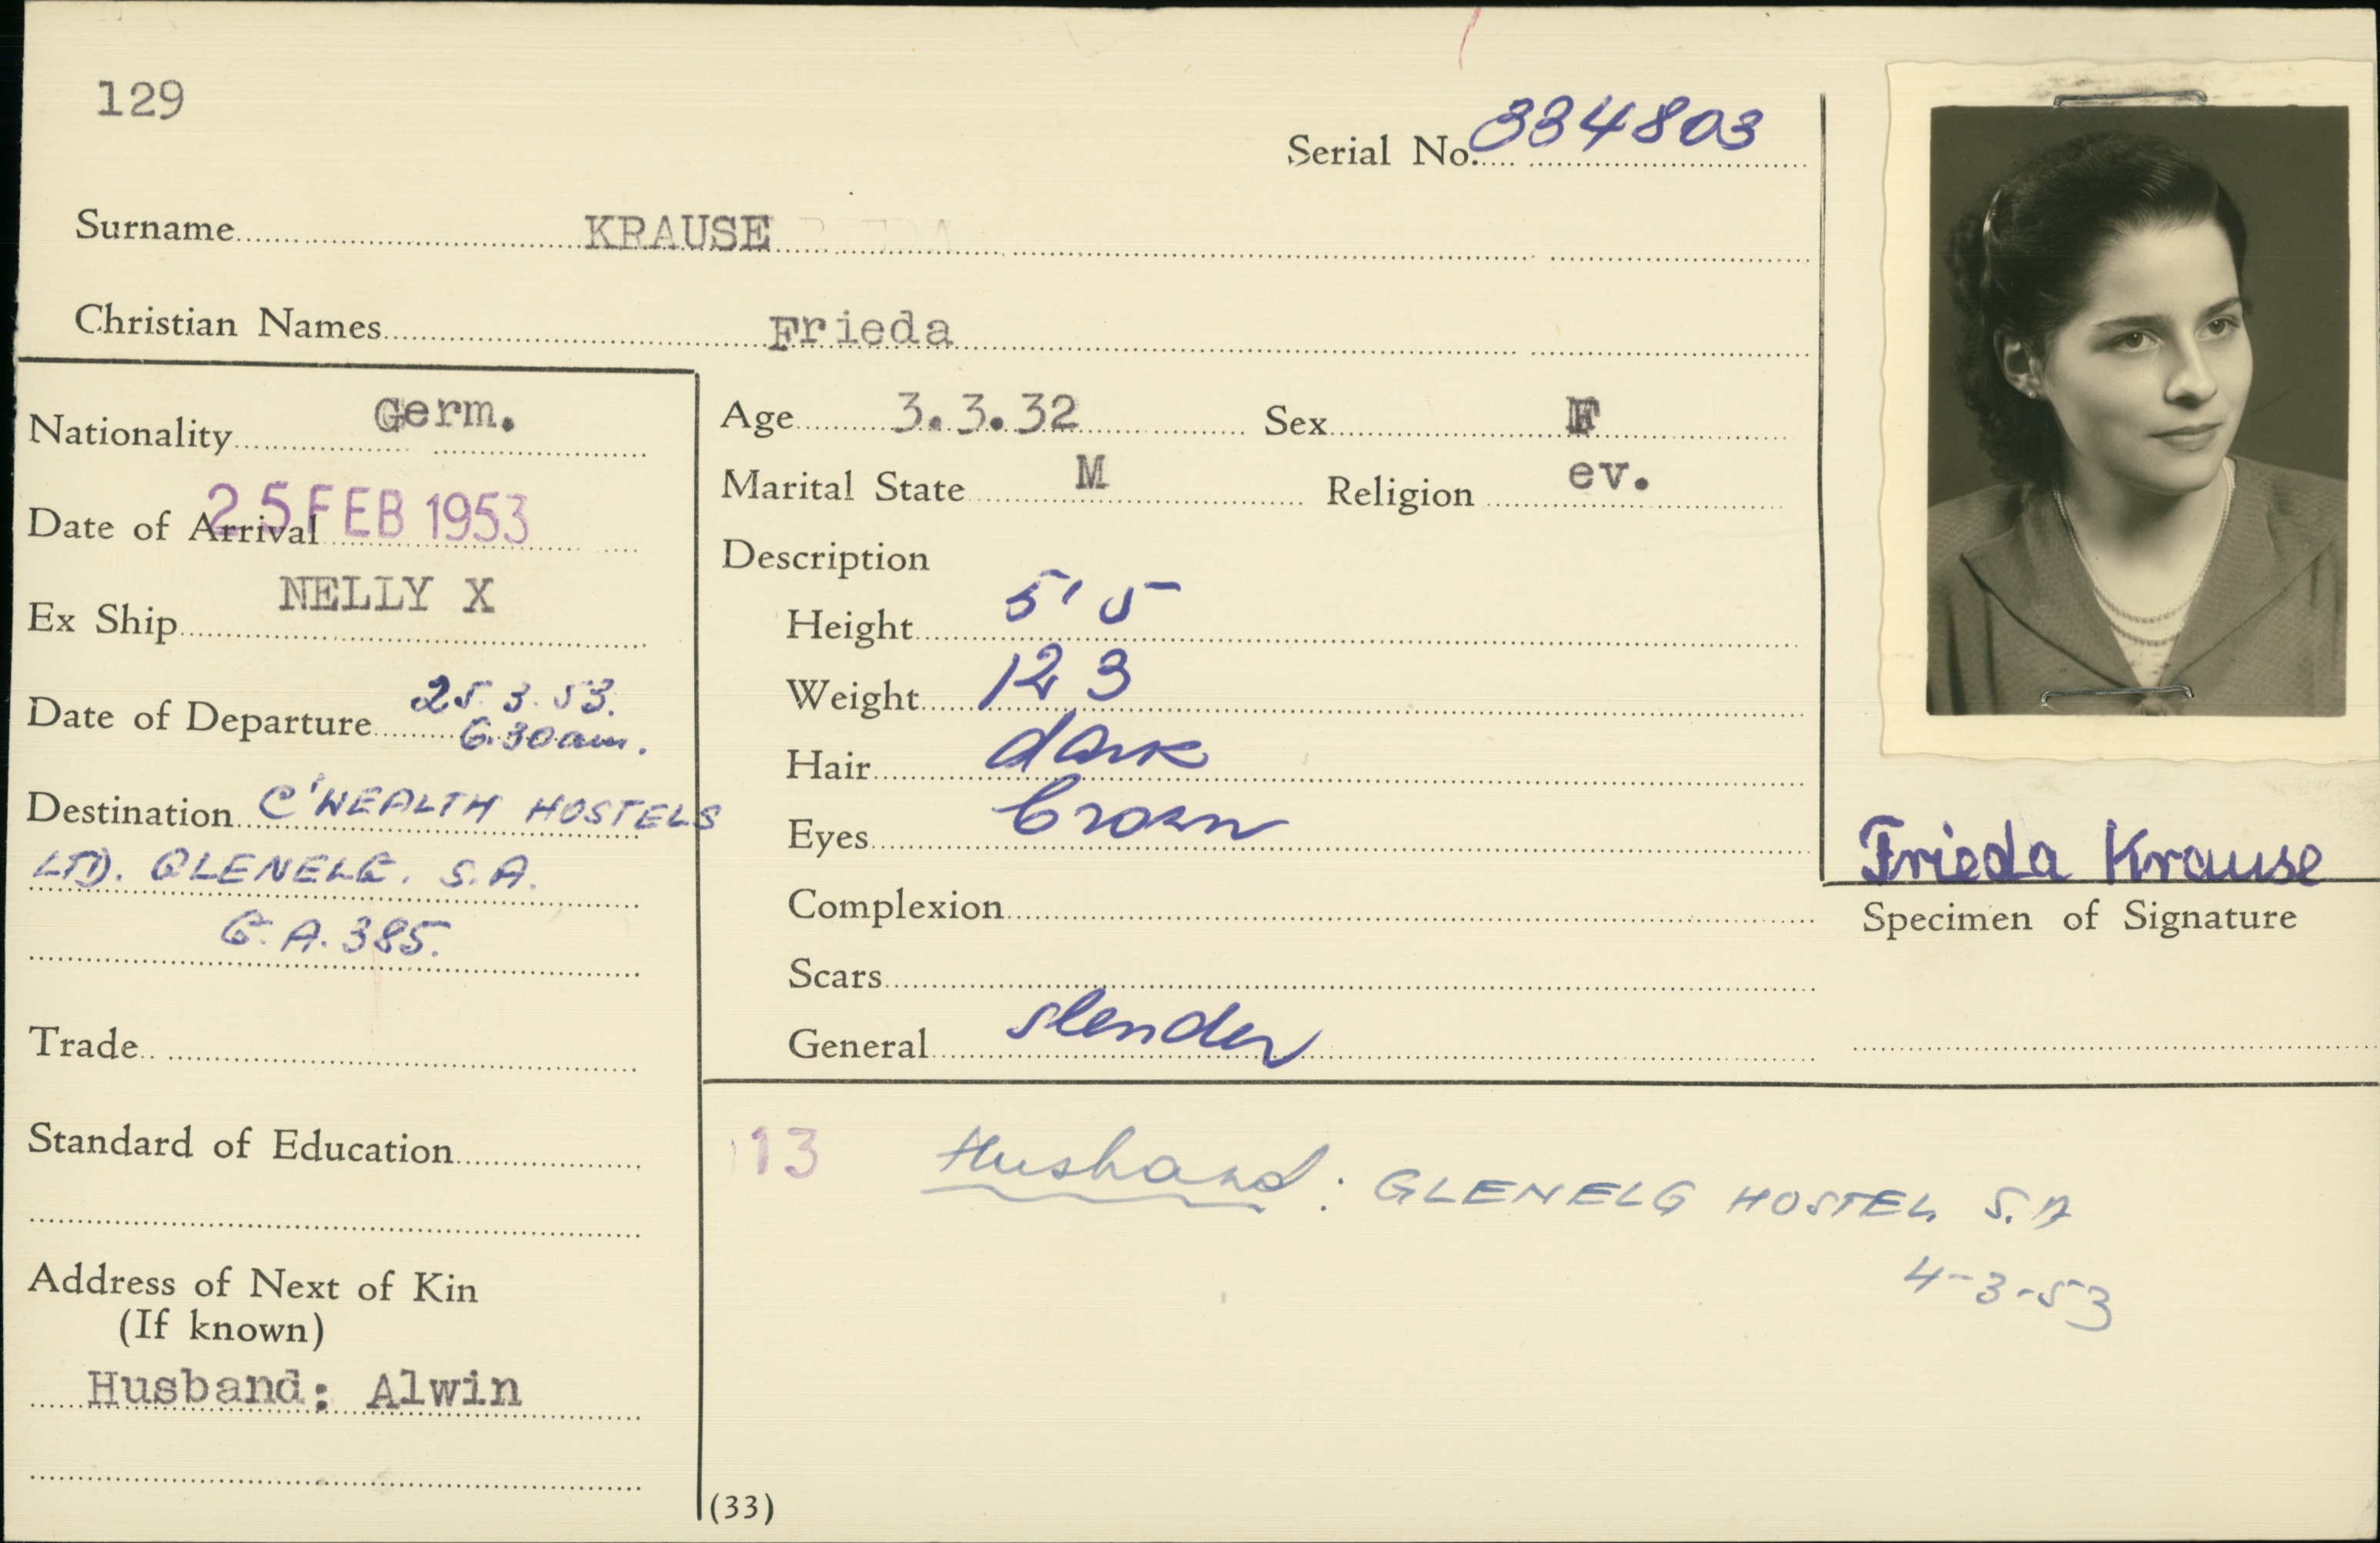 129
Serial No. 334803
Surname KRAUSE
Christian Names Frieda
Nationality Germ.
Date of Arrival 25 FEB 1953
Ex Ship NELLY X
Date of Departure 25.3.53.
6.30am.
Destination C'WEALTH HOSTELS
LTD. GLENELG. S.A.
G.A.385.
Trade
Standard of Education
Address of Next of Kin
(If known)
Husband: Alwin
Age 3.3.32 Sex F
Marital State M Religion ev.
Description
Height 5' 5
Weight 123
Hair dark
Eyes brown
Complexion
Scars
General slender
Frieda Krause
Specimen of Signature
13 Husband: GLENELG HOSTEL S.A
4-3-53
(33)